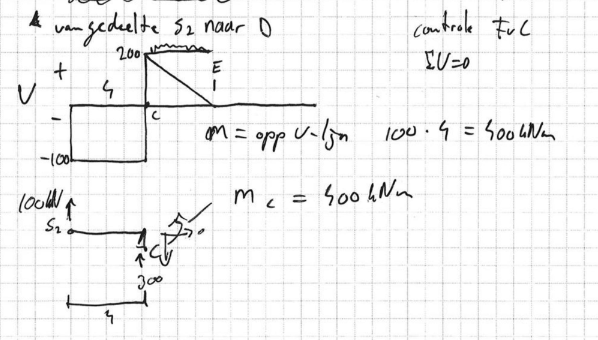 van gedeelte S2 naar D
controle Σv C
ΣV=0
200
E
+
V
4
C
-
-100
M = opp V-lijn 100 · 4 = 400 kNm
100kN
Mc = 400 kNm
S2
C
300
4